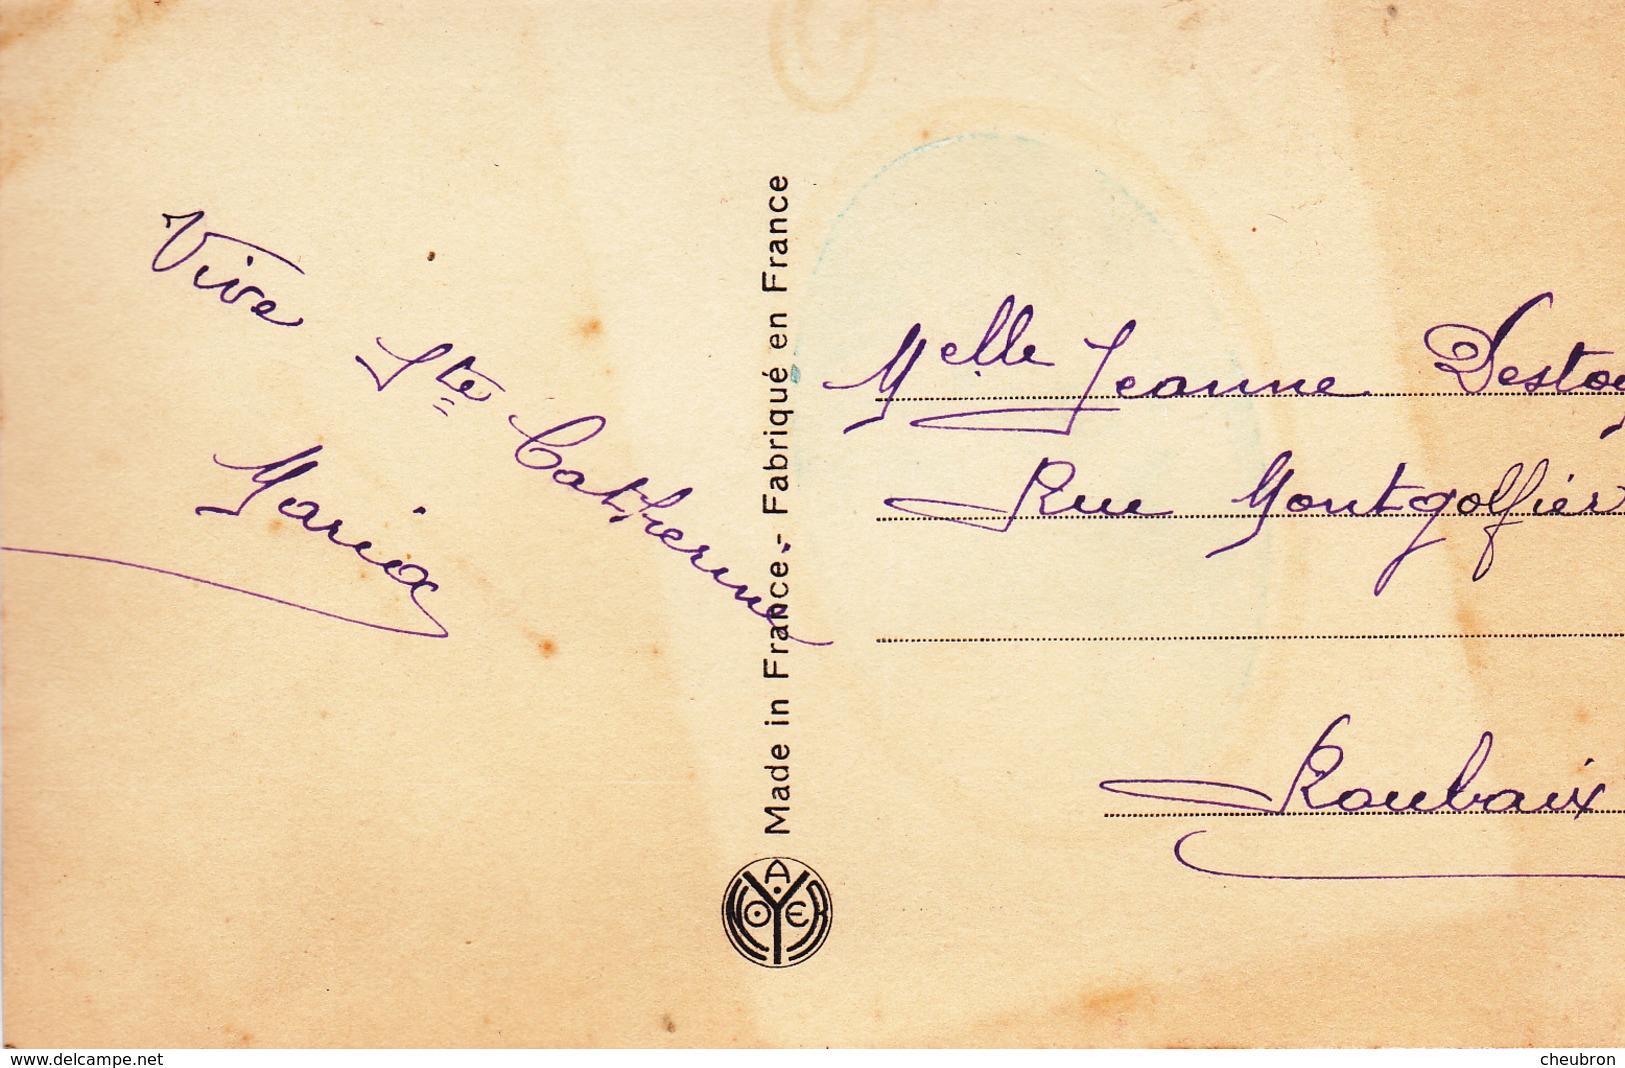 Vive Ste Catherine
Maria
Made in France.- Fabriqué en France
A NOYER
Melle Jeanne
Rue Montgolfier
Roubaix
www.delcampe.net
cheubron